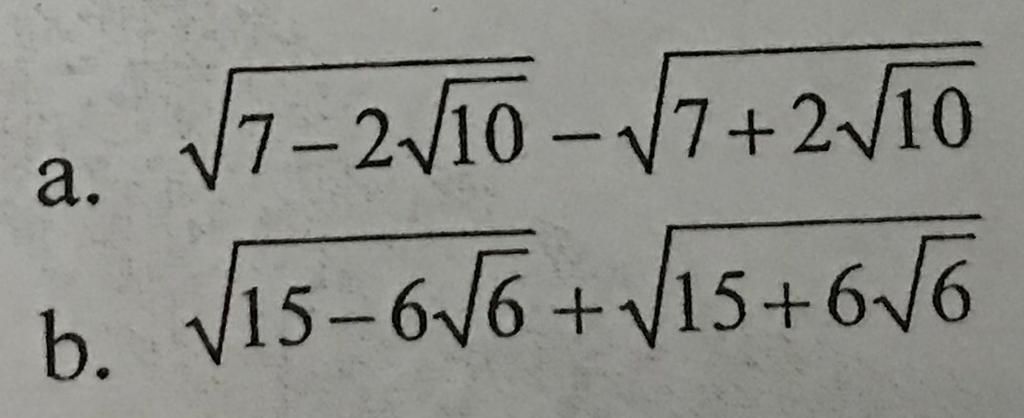 a. √(7 − 2√10) − √(7 + 2√10)
b. √(15 − 6√6) + √(15 + 6√6)